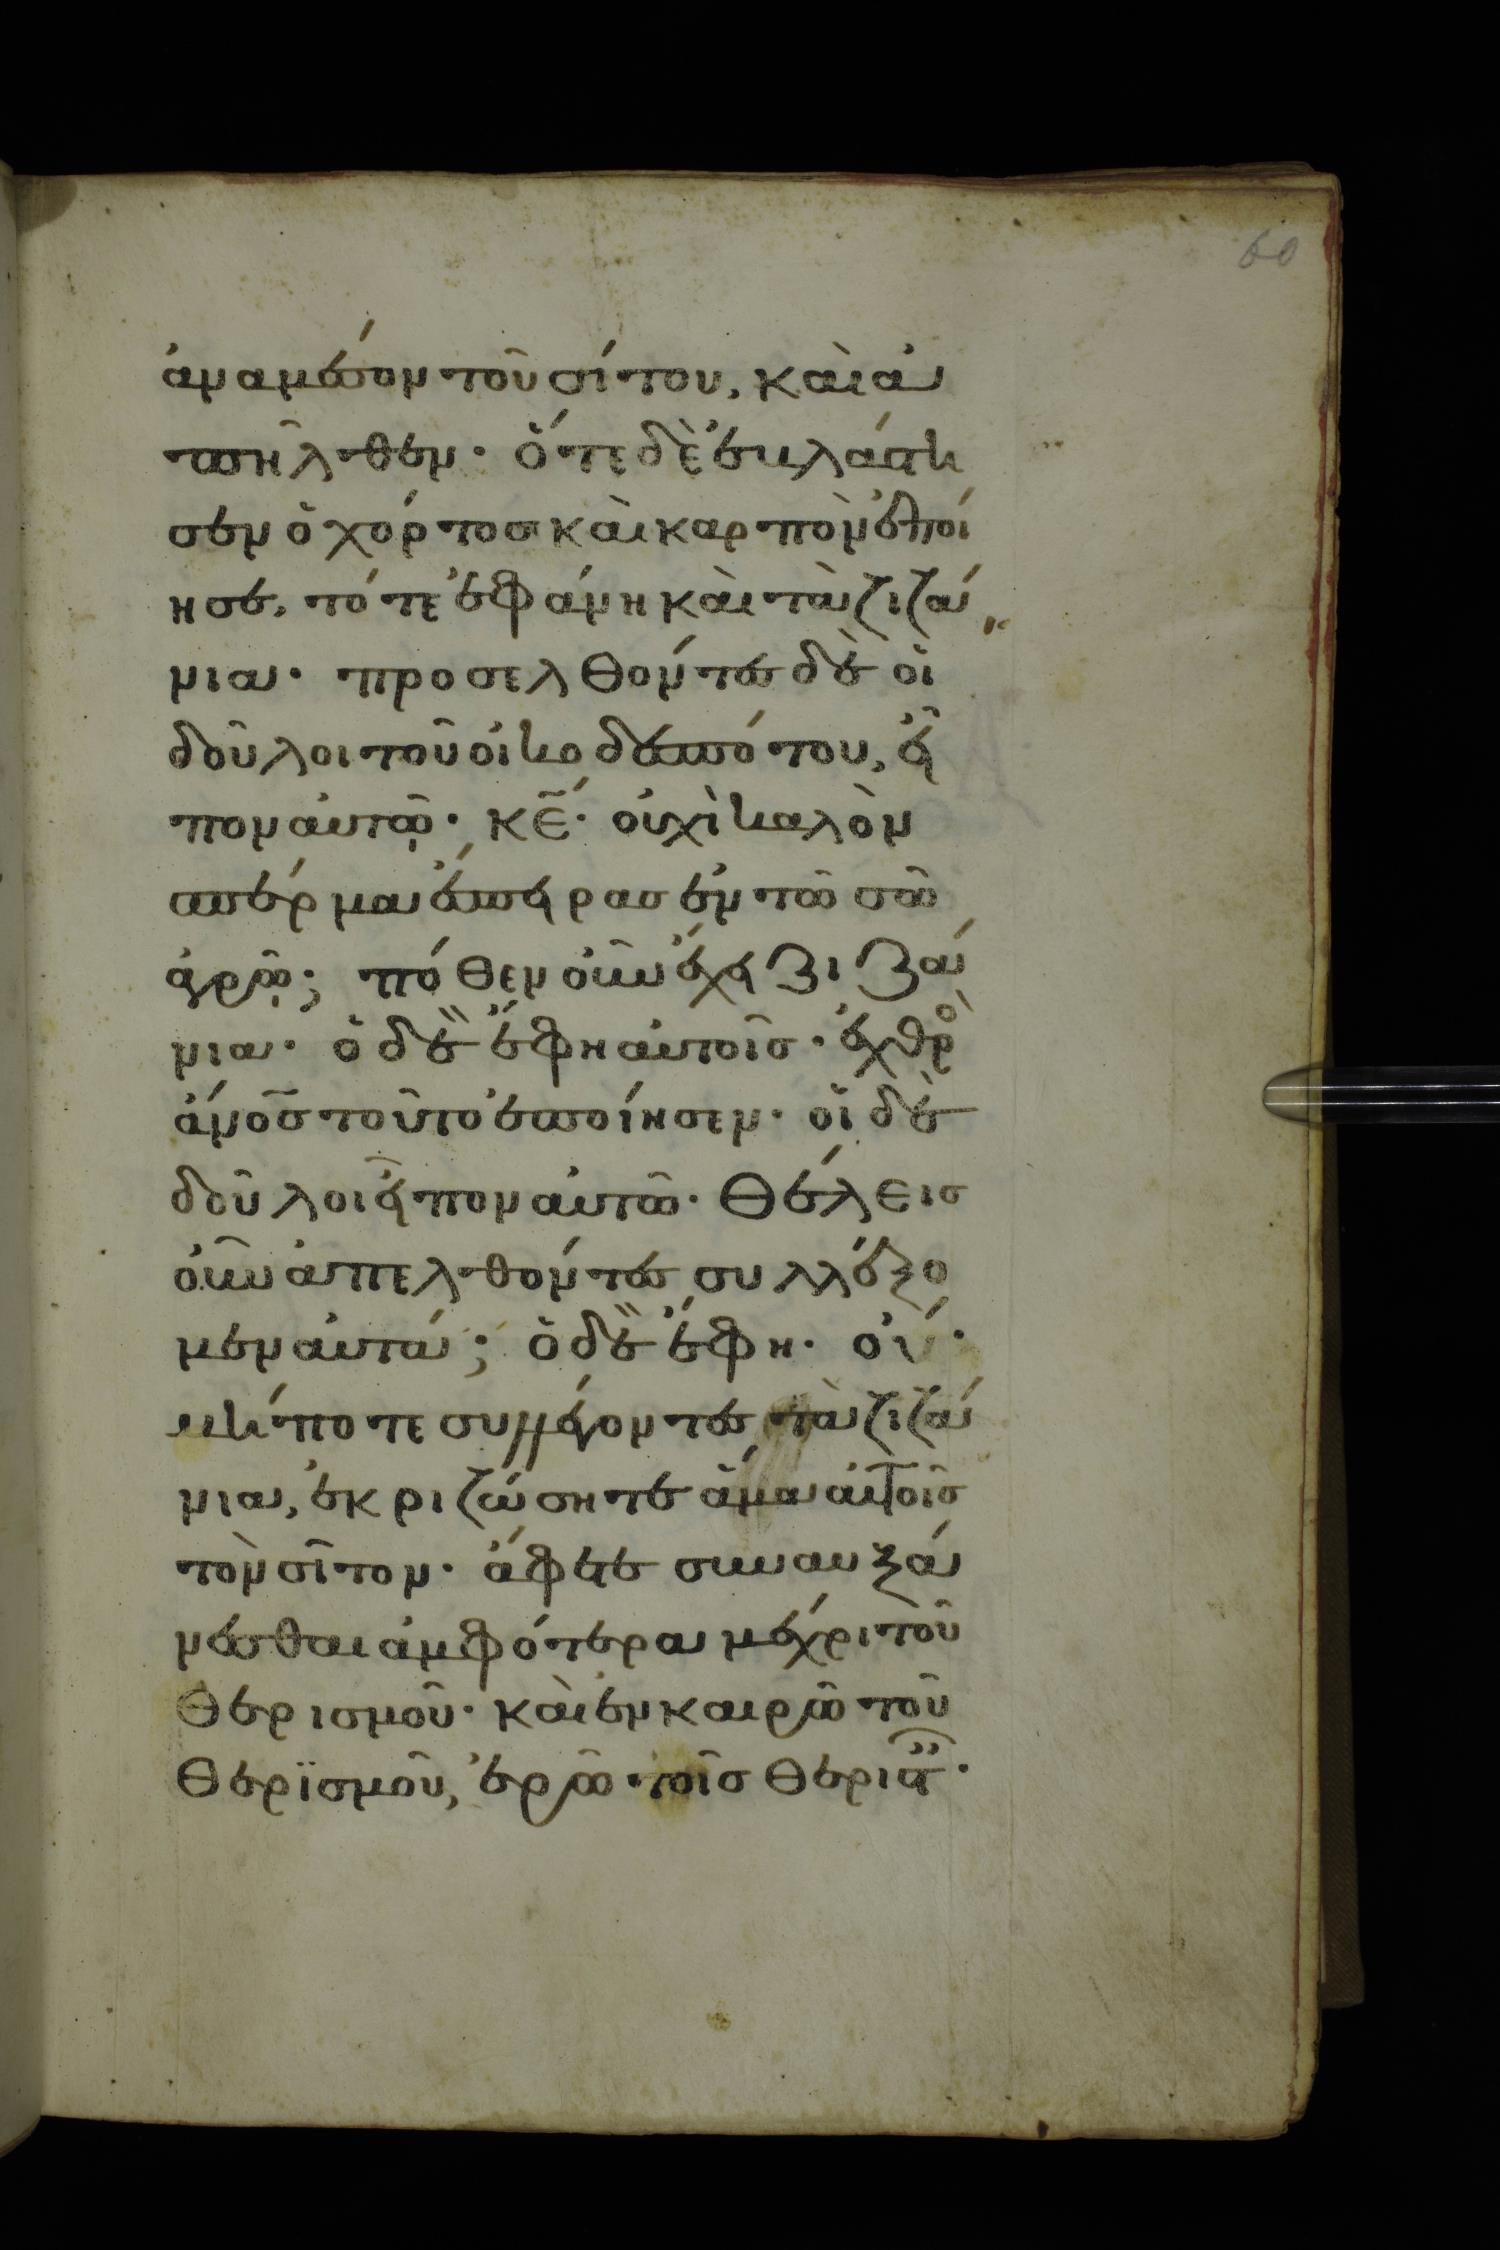 60
ἀναμέσον τοῦ σίτου, καὶ ἀ
πῆλθεν· ὅτε δὲ ἐβλάστη
σεν ὁ χόρτος καὶ καρπὸν ἐποί
ησε, τότε ἐφάνη καὶ τὰ ζιζά
νια· προσελθόντες δὲ οἱ
δοῦλοι τοῦ οἰκοδεσπότου, εἶ
πον αὐτῶ· κ̅ε̅· οὐχὶ καλὸν
σπέρμα ἔσπειρας ἐν τῶ σῶ
ἀγρῶ; πόθεν οὖν ἔχει ζιζά
νια· ὁ δὲ ἔφη αὐτοῖς· ἐχθρὸ
ἄνος τοῦτο ἐποίησεν· οἱ δὲ
δοῦλοι εἶπον αὐτῶ· θέλεις
οὖν ἀπελθόντες συλλέξο
μεν αὐτά; ὁ δὲ ἔφη· οὔ·
μήποτε συλλέγοντες τὰ ζιζά
νια, ἐκριζώσητε ἅμα αὐτοῖς
τὸν σῖτον· ἄφετε συναυξά
νεσθαι ἀμφότερα μέχρι τοῦ
θερισμοῦ· καὶ ἐν καιρῶ τοῦ
θερϊσμοῦ, ἐρῶ τοῖς θεριστ·